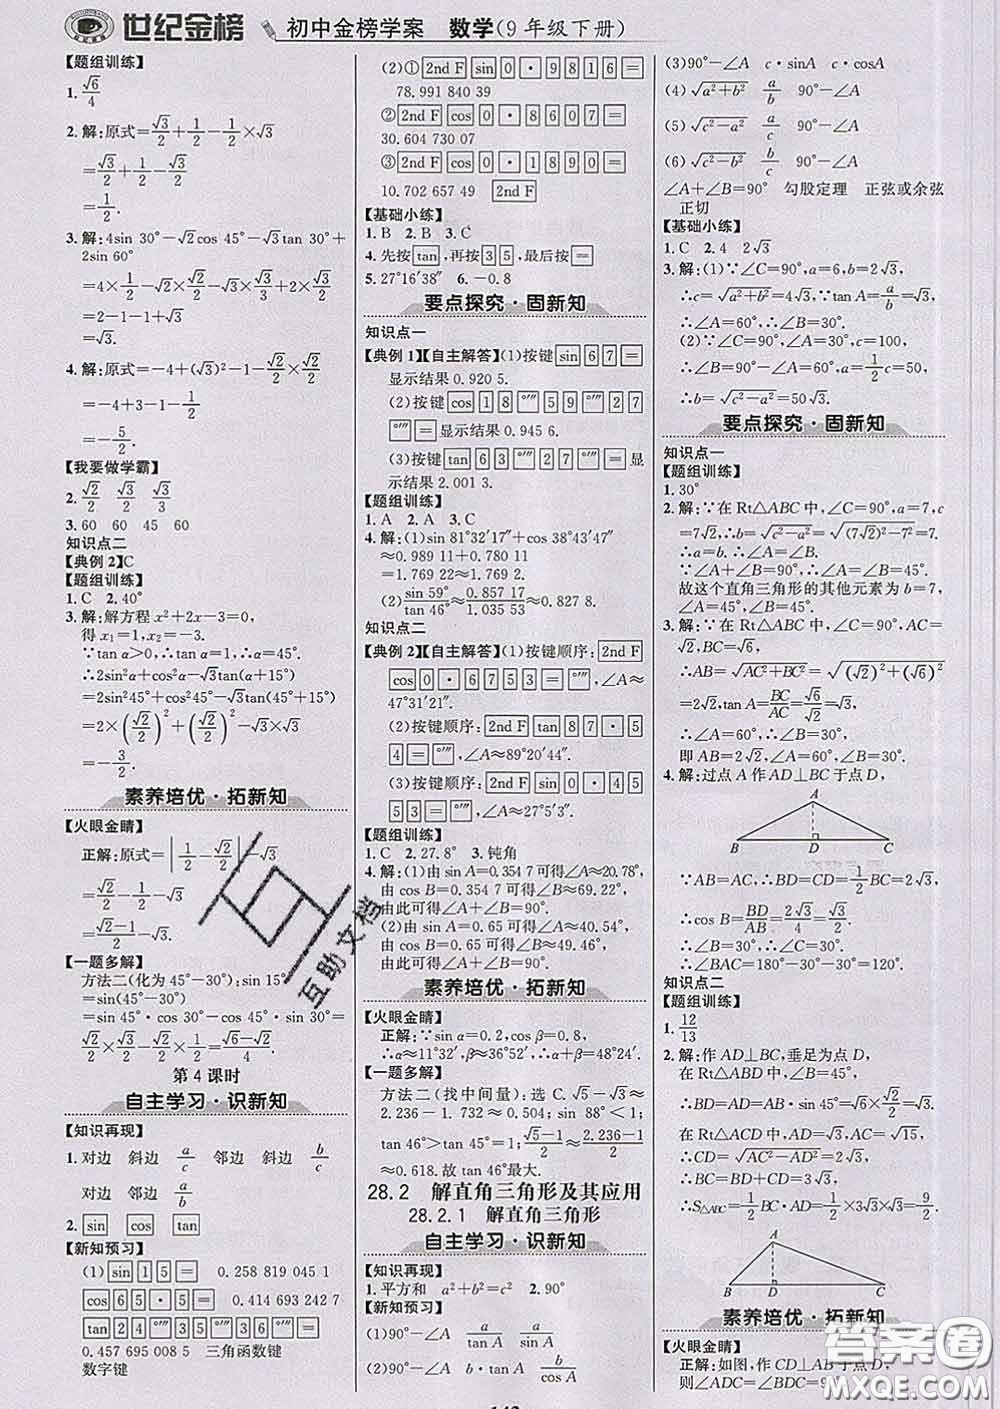 世纪金榜 初中金榜学案 数学(9年级下册)
【题组训练】
1. √6/4
2. 解:原式=√3/2+1/2-1/2×√3
=√3/2+1/2-√3/2
=1/2.
3. 解:4sin 30°-√2cos 45°-√3tan 30°+
2sin 60°
=4×1/2-√2×√2/2-√3×√3/3+2×√3/2
=2-1-1+√3
=√3.
4. 解:原式=-4+(√3)²-1-√2/2×√2/2
=-4+3-1-1/2
=-5/2.
【我要做学霸】
2. √2/2 √3/2 √3/3
3. 60 60 45 60
知识点二
【典例 2】C
【题组训练】
1. C 2. 40°
3. 解:解方程 x²+2x-3=0,
得 x₁=1,x₂=-3.
∵tan α>0,∴tan α=1,∴α=45°.
∴2sin²α+cos²α-√3tan(α+15°)
=2sin²45°+cos²45°-√3tan(45°+15°)
=2×(√2/2)²+(√2/2)²-√3×√3
=-3/2.
素养培优·拓新知
【火眼金睛】
正解:原式=|1/2-√2/2|-√3
=√2/2-1/2-√3.
【一题多解】
方法二(化为 45°-30°):sin 15°
=sin(45°-30°)
=sin 45°·cos 30°-cos 45°·sin 30°
=√2/2×√3/2-√2/2×1/2=(√6-√2)/4.
第 4 课时
自主学习·识新知
【知识再现】
1. 对边 斜边 a/c 邻边 斜边 b/c
对边 邻边 a/b
2. sin cos tan
【新知预习】
(1) sin 1 5 = 0.258 819 045 1
cos 6 5 · 5 = 0.414 693 242 7
tan 2 4 °′″ 3 5 °′″ 3 6 °′″ =
0.457 695 008 5 三角函数键
数字键
(2)① 2nd F sin 0 · 9 8 1 6 =
78.991 840 39
② 2nd F cos 0 · 8 6 0 7 =
30.604 730 07
③ 2nd F cos 0 · 1 8 9 0 =
10.702 657 49 2nd F
【基础小练】
1. B 2. B 3. C
4. 先按 tan ,再按 3 5 ,最后按 =
5. 27°16′38″ 6. -0.8
要点探究·固新知
知识点一
【典例 1】【自主解答】(1)按键 sin 6 7 =
显示结果 0.920 5.
(2)按键 cos 1 8 °′″ 5 9 °′″ 2 7
°′″ = 显示结果 0.945 6.
(3)按键 tan 6 3 °′″ 2 7 °′″ = 显
示结果 2.001 3.
【题组训练】
1. A 2. A 3. C
4. 解:(1)sin 81°32′17″+cos 38°43′47″
≈0.989 11+0.780 11
=1.769 22≈1.769 2.
(2)sin 59°/tan 46°≈0.857 17/1.035 53≈0.827 8.
知识点二
【典例 2】【自主解答】(1)按键顺序: 2nd F
cos 0 · 6 7 5 3 = °′″ ,∠A≈
47°31′21″.
(2)按键顺序: 2nd F tan 8 7 · 5
4 = °′″ ,∠A≈89°20′44″.
(3)按键顺序: 2nd F sin 0 · 4 5
5 3 = °′″ ,∠A≈27°5′3″.
【题组训练】
1. C 2. 27.8° 3. 钝角
4. 解:(1)由 sin A=0.354 7 可得∠A≈20.78°,
由 cos B=0.354 7 可得∠B≈69.22°,
由此可得∠A+∠B=90°.
(2)由 sin A=0.65 可得∠A≈40.54°,
由 cos B=0.65 可得∠B≈49.46°,
由此可得∠A+∠B=90°.
素养培优·拓新知
【火眼金睛】
正解:∵sin α=0.2,cos β=0.8,
∴α≈11°32′,β≈36°52′,∴α+β=48°24′.
【一题多解】
方法二(找中间量):选 C.√5-√3≈
2.236-1.732≈0.504,sin 88°<1;
tan 46°>tan 45°=1;(√5-1)/2≈(2.236-1)/2
≈0.618.故 tan 46°最大.
28.2 解直角三角形及其应用
28.2.1 解直角三角形
自主学习·识新知
【知识再现】
1. 平方和 a²+b²=c² 2. 90°
【新知预习】
(1)90°-∠A a/tan A a/sin A
(2)90°-∠A b·tan A b/cos A
(3)90°-∠A c·sinA c·cosA
(4)√(a²+b²) a/b 90°-∠A
(5)√(c²-a²) a/c 90°-∠A
(6)√(c²-b²) b/c 90°-∠A
∠A+∠B=90° 勾股定理 正弦或余弦
正切
【基础小练】
1. C 2. 4 2√3
3. 解:(1)∵∠C=90°,a=6,b=2√3,
∴c=√(a²+b²)=4√3,∵tan A=a/b=√3,
∴∠A=60°,∴∠B=30°.
(2)∵∠C=90°,∠A=30°,c=100,
∴∠B=90°-∠A=60°,a=1/2c=50,
∴b=√(c²-a²)=50√3.
要点探究·固新知
知识点一
【题组训练】
1. 30°
2. 解:∵在 Rt△ABC 中,∠C=90°,a=7,c
=7√2,∴b=√(c²-a²)=√((7√2)²-7²)=7.
∴a=b.∴∠A=∠B.
∵∠A+∠B=90°,∴∠A=∠B=45°.
故这个直角三角形的其他元素为 b=7,
∠A=45°,∠B=45°.
3. 解:∵在 Rt△ABC 中,∠C=90°,AC=
√2,BC=√6,
∴AB=√(AC²+BC²)=√((√2)²+(√6)²)
=2√2,tan A=BC/AC=√6/√2=√3,
∴∠A=60°,∴∠B=30°,
即 AB=2√2,∠A=60°,∠B=30°.
4. 解:过点 A 作 AD⊥BC 于点 D,
A
B D C
∵AB=AC,∴BD=CD=1/2BC=2√3,
∴cos B=BD/AB=2√3/4=√3/2,
∴∠B=30°,∴∠C=30°,
∴∠BAC=180°-30°-30°=120°.
知识点二
【题组训练】
1. 12/13
2. 解:作 AD⊥BC,垂足为点 D,
在 Rt△ABD 中,∠B=45°,
∴BD=AD=AB·sin 45°=√6×√2/2=√3.
在 Rt△ACD 中,AD=√3,AC=√15,
∴CD=√(AC²-AD²)=2√3,
∴BC=BD+CD=3√3,
∴S△ABC=1/2BC·AD=1/2×3√3×√3=9/2.
A
B D C
素养培优·拓新知
【火眼金睛】
正解:如图,作 CD⊥AB 于点 D,
则∠ADC=∠BDC=90°.
互助文档
答案圈
MXQE.COM